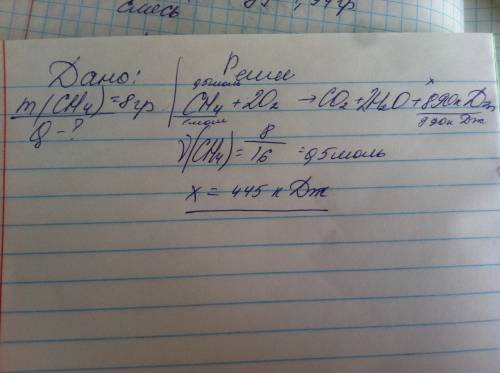 смесь
Дано:
Решение
m(CH4)=8гр
Q-?
0,5моль
x
CH4 + 2O2 → CO2+2H2O+890кДж
1моль
890кДж
ν(CH4)= 8/16 =0,5моль
x = 445 кДж